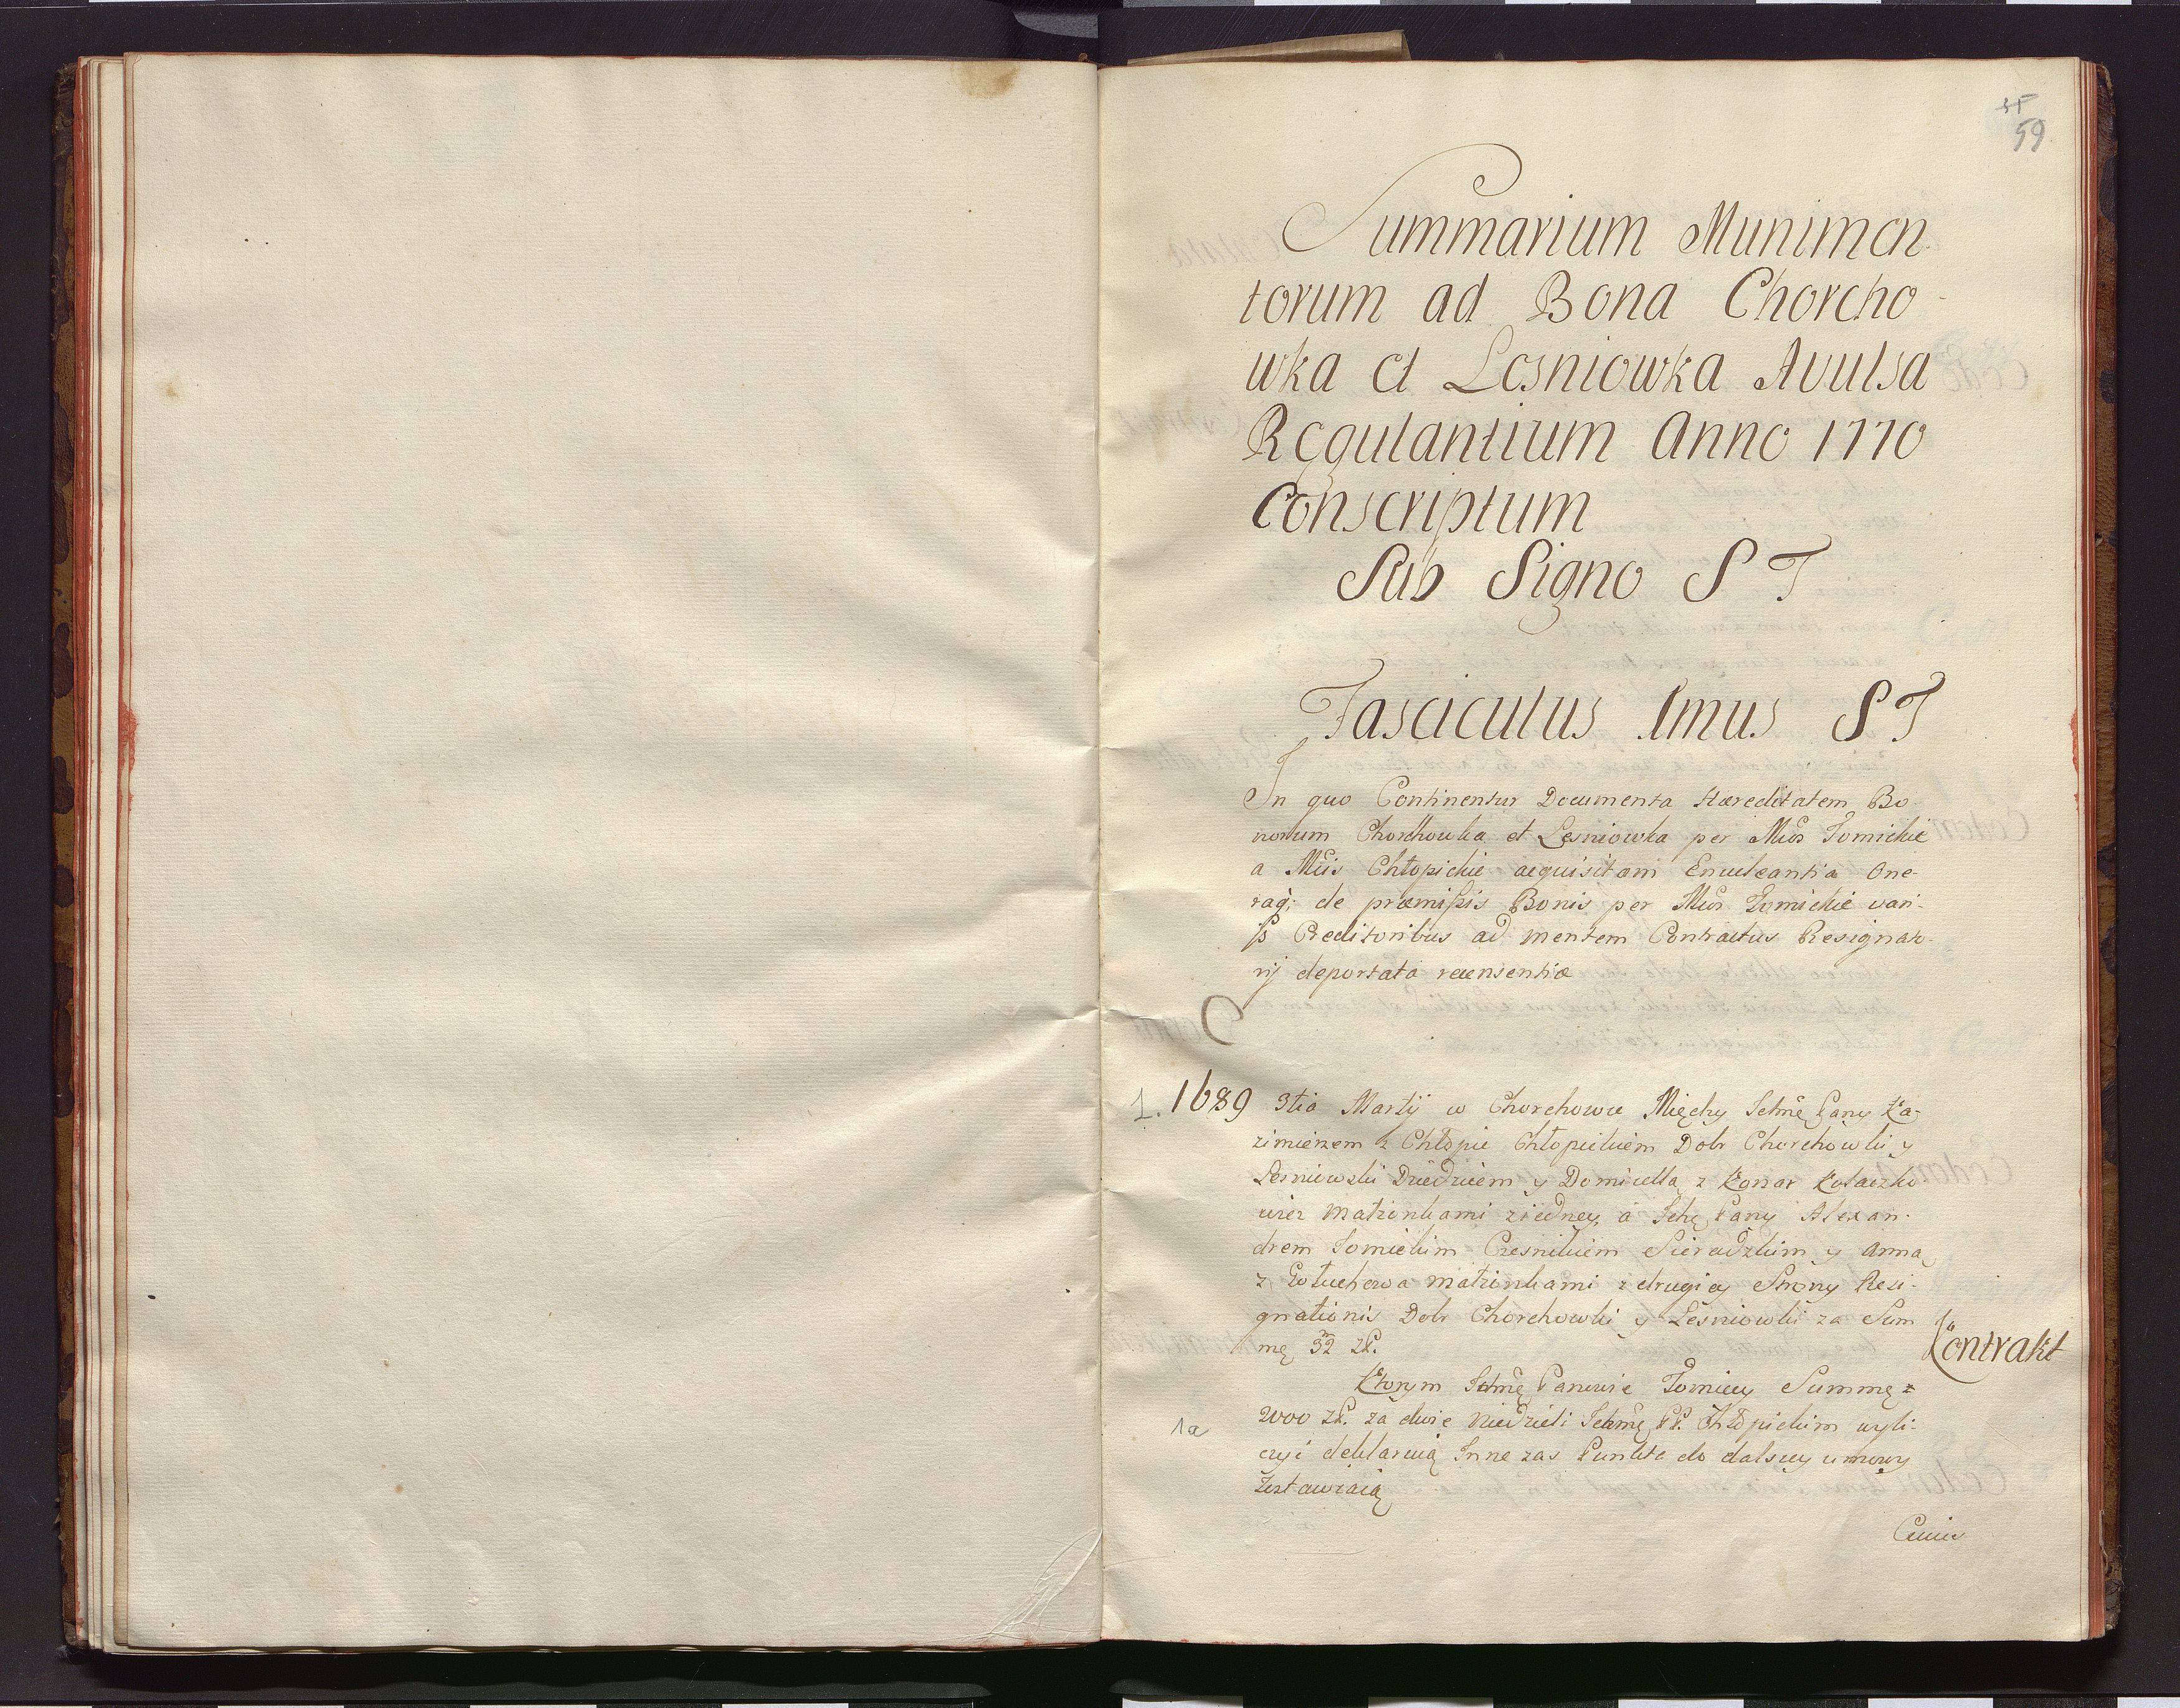 59
Summarium Munimen
torum ad Bona Chorcho-
wka et Lesniowka Avulsa
Regulantium Anno 1770
Conscriptum
Sub Signo S T
Fasciculus 1mus S T
In quo Continentur Documenta Hæreditatem Bo-
norum Chorchowka et Lesniowka per Mũos Tomickie
a Mũis Chłopickie acquisitam Enucleantia One-
raq; de præmissis Bonis per Mũos Tomickie vari-
js Creditoribus ad mentem Contractus Resignato-
rij deportata recensentia
1. 1689 3tia Martij w Chorchowce Między Ichmę Pany Ka-
zimierzem z Chłopic Chłopickiem Dobr Chorchowki y
Lesniowski Dziedzicem y Domicellą z Konar Kołaczko
wież Małżonkami z iedney, a Ichę Pany Alexan-
drem Tomickim Czesnikiem Sieradzkim y Anną
z Gołuchowa małżonkami z drugiey Strony Resi-
gnationis Dobr Chorchowki y Lesniowki za Sum
mę 32 zł.
Kontrakt
Ktorym Ichmę Panowie Tomiccy Summę
2000 zł. za dwie Niedzieli Ichmę PP. Chłopickim wyli-
czyć deklaruią Inne zas Punkta do dalszey umowy
Zostawiaią
1a
Cuius